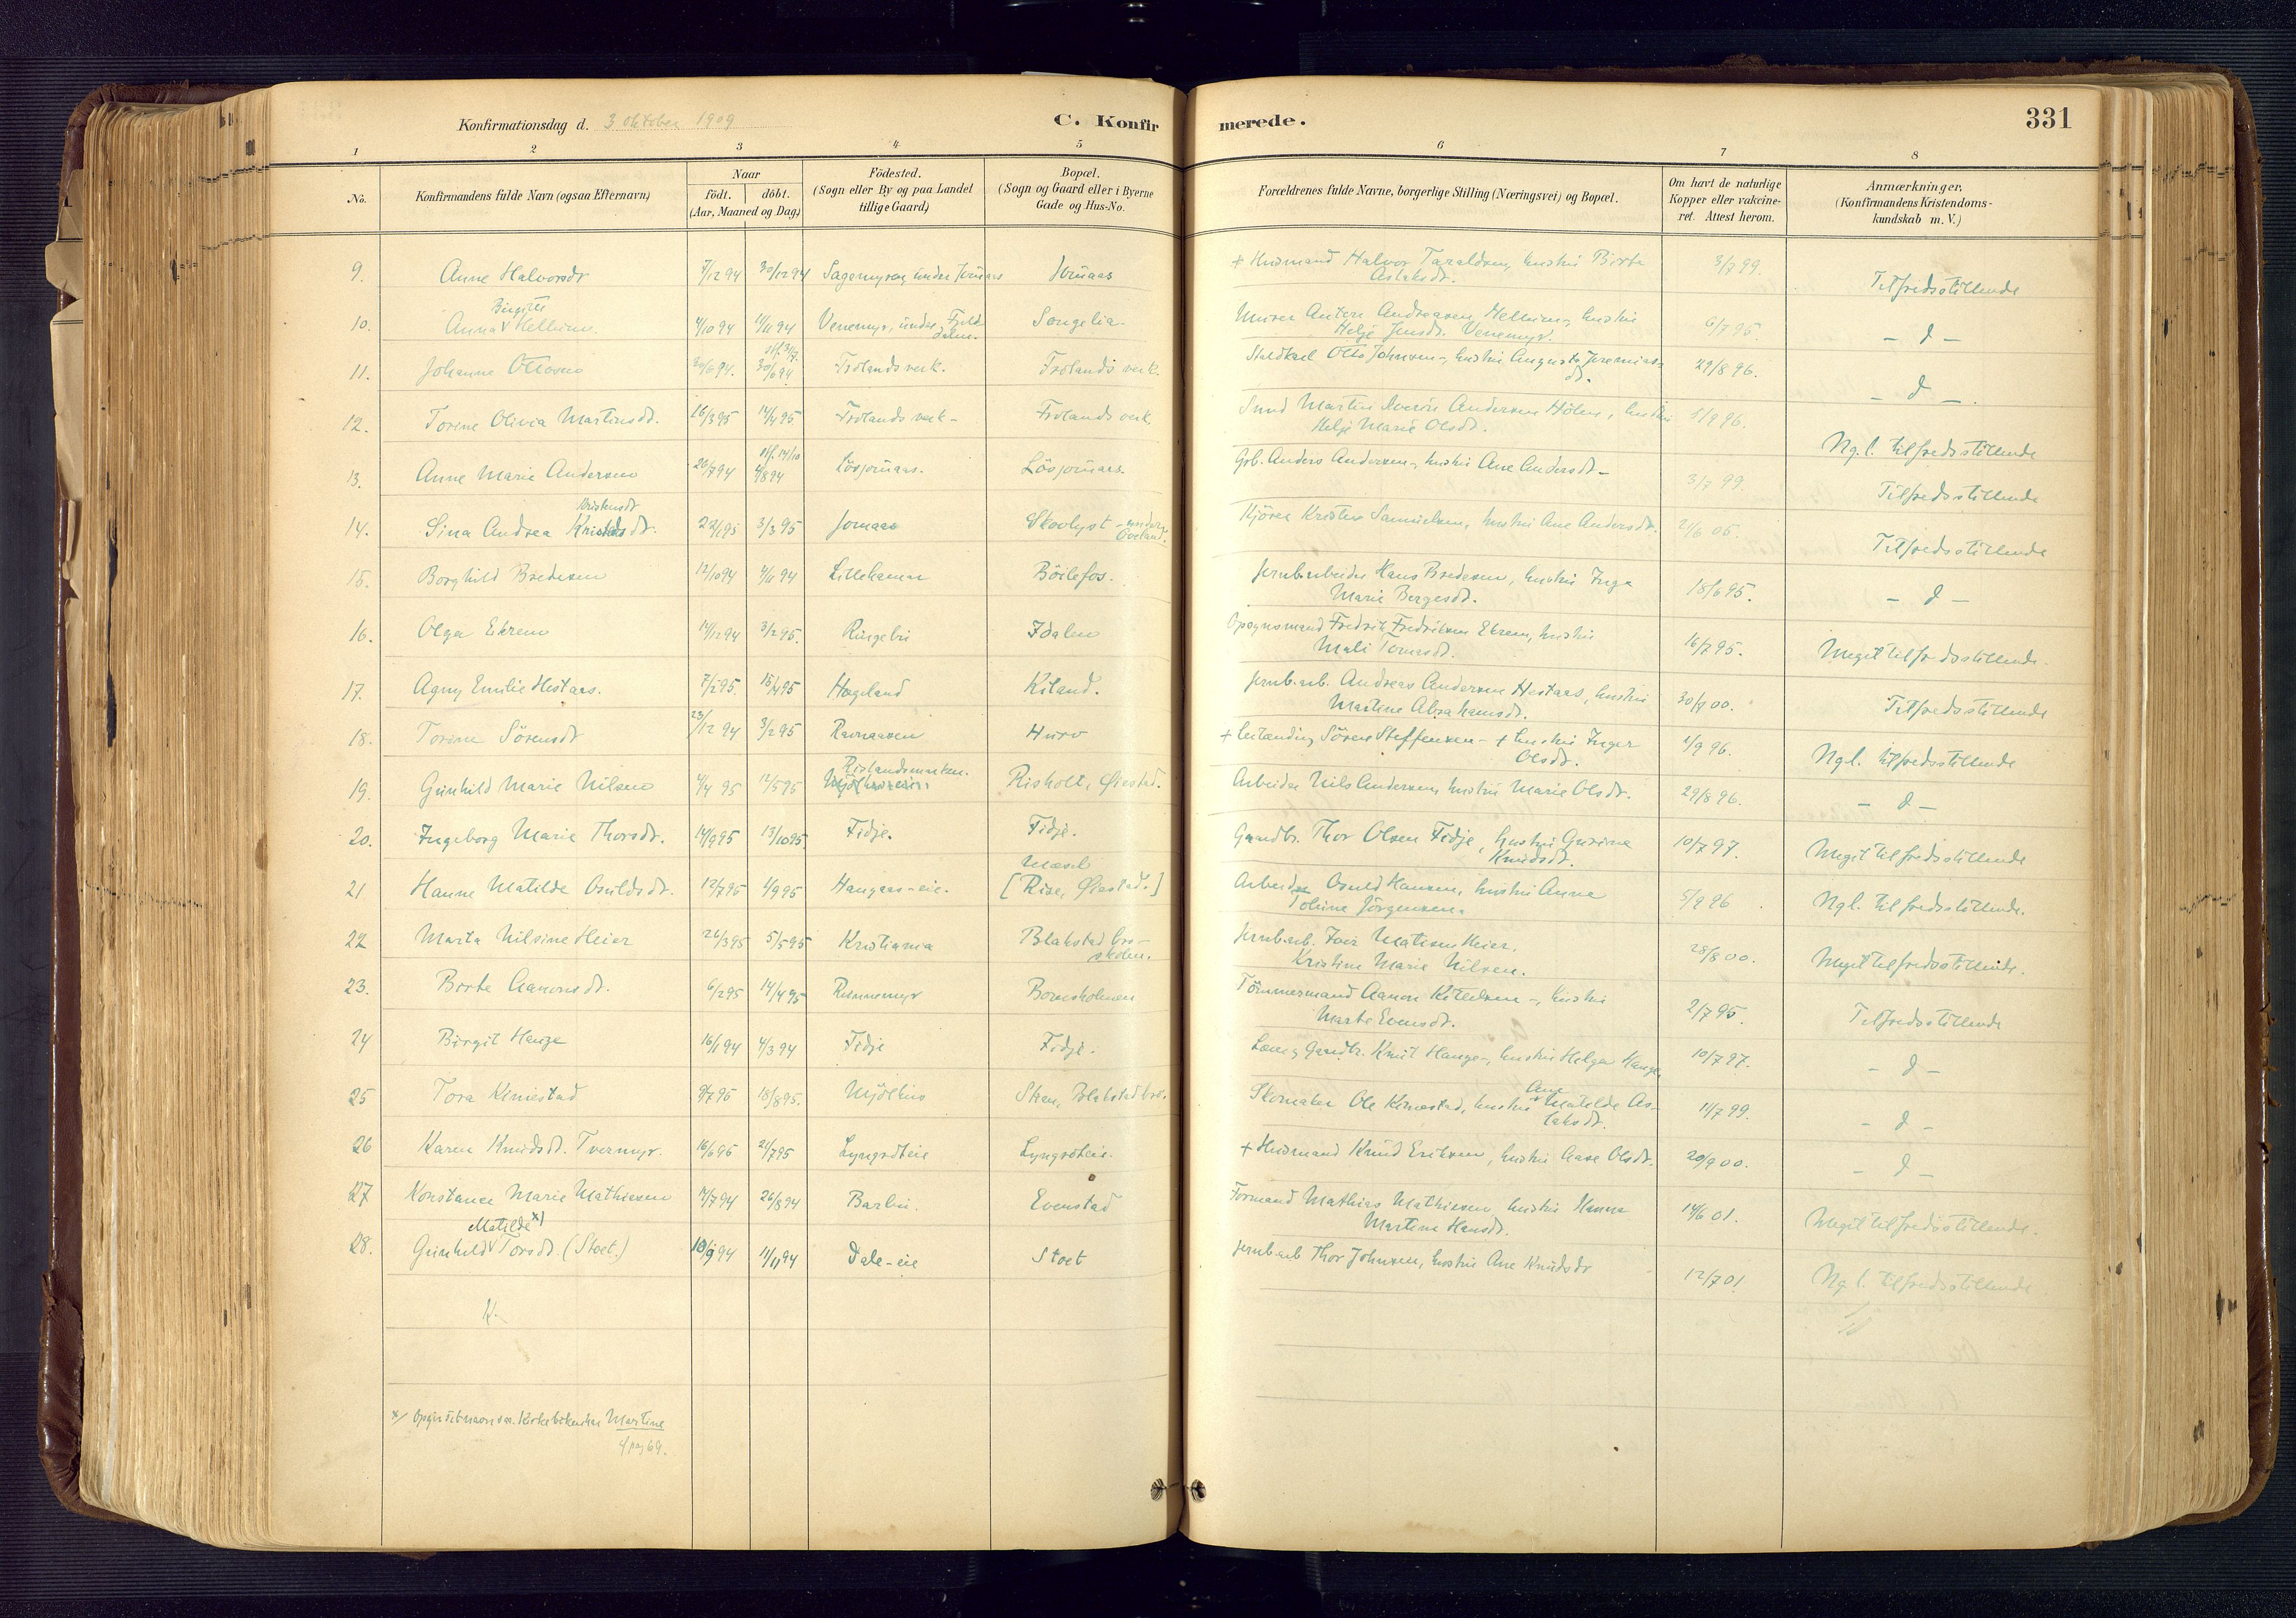 Konfirmationsdag d. 3 oktober 1909
C. Konfirmerede.
331
1 2 3 4 5 6 7 8
No.
Konfirmandens fulde Navn (ogsaa Efternavn)
Naar
födt. döbt.
(Aar, Maaned og Dag)
Födested.
(Sogn eller By og paa Landet
tillige Gaard)
Bopæl.
(Sogn og Gaard eller i Byerne
Gade og Hus-No.
Forældrenes fulde Navne, borgerlige Stilling (Næringsvei) og Bopæl.
Om havt de naturlige
Kopper eller vakcine-
ret. Attest herom.
Anmærkninger.
(Konfirmandens Kristendoms-
kundskab m. V.)
9. Anne Halvorsdr 7/12 94 30/12 94 Sagemyren, under Jomaas Jomaas + Husmand Halvor Taraldsen, hustru Birte
Aslaksdr. 3/7 99. Tilfredsstillende
Birgitte
10. Anna Hellum. 4/10 94 1/11 94 Venemyr, under Songelia. Murer Anton Andreasen Hellum, hustru
Helje Jensdr. Venemyr. 6/7 95. - d -
stf. 3/7.
11. Johanne Ottosen 30/6 94 Frolands verk. Frolands verk. Staldkarl Otto Johnsen, hustru Augusta Jeremias-
dr. 29/8 96. - d -
12. Torine Olivia Martinsdr. 16/3 95 14/4 95. Frolands verk - Frolands verk. Smed Martin Andersen Holen, hustru
Helje Marie Olsdr. 5/9 96. Ng. l. tilfredsstillende
stf. 14/10
13. Anne Marie Andersen 26/7 94 4/8 94 Lösjomaas. Lösjomaas. Grb. Anders Andersen, hustru Ane Andersdr - 3/7 99. Tilfredsstillende
Kristensdr
14. Sina Andrea 22/1 95 3/3 95 Jomaas Skovlyst - under
Öveland. Kjörer Kristen Samuelsen, hustru Ane Andersdr. 21/6 05. Tilfredsstillende
15. Borghild Bredesen 12/10 94 4/11 94 Lillehamar Böilefos. Jernb.arbeider Hans Bredesen, hustru Inga
Marie Bergesdr. 18/6 95. - d -
16. Olga Ekren 14/12 94 3/2 95. Ringebu Idalen Opsynsmand Fredrik Fredriksen Ekren, hustru
Mali Tomasdr. 16/7 95. Meget tilfredsstillende.
17. Agny Emilie Hestaas. 7/2 95. 15/4 95 Hægeland Kiland. Jernb.arb. Andreas Andersen Hestaas, hustru
Martine Abrahamsdr. 30/9 00. Tilfredsstillende
18. Torine Sörensdr 23/12 94 3/2 95 Ravnaasen Hurv + Leilænding Sören Steffensen - + hustru Inger
Olsdr. 1/9 96. Ng. l. tilfredsstillende
Rislandsmarken.
19. Gunhild Marie Nilsen 4/4 95 12/5 95 Risholt, Øiestad. Arbeider Nils Andersen, hustru Marie Olsdr. 29/8 96. - d -
20. Ingeborg Marie Thorsdr. 14/9 95 13/10 95. Fidje. Fidje. Gaardbr. Thor Olsen Fidje, hustru Gurine
Knudsdr. 10/7 97. Meget tilfredsstillende
Mæsel
21 Hanne Matilde Osuldsdr. 12/7 95 1/9 95 Haugaas-eie. [Rise, Øiestad.] Arbeider Osuld Hansen, hustru Anne
Toline Jörgensen. 5/9 96 Ng. l. tilfredsstillende.
22 Marta Nilsine Heier 26/3 95 5/5 95 Kristiania Blakstad bro-
skolen. Jernb.arb. Iver Matisen Heier,
Kristine Marie Nilsen. 28/8 00. Meget tilfredsstillende.
23. Birte Aanonsdr. 6/2 95 14/4 95 Runnemyr Bomsholmen Tömmermand Aanon Kittelsen -, hustru
Marte Evensdr. 2/7 95. Tilfredsstillende
24 Birgit Hauge 16/1 94 4/3 94 Fidje Fidje. Læn. Gaardbr. Knut Hauge -, hustru Helga Hauge 10/7 97. - d -
25 Tora Kimestad 9/7 95 18/8 95. Mjölhus Skau, Blakstad bro. Skomaker Ole Kimestad, hustru Ane Matilde As-
laksdr. 11/7 99. - d -
26 Karen Knudsdr. Tvermyr. 16/6 95 21/7 95 Lyngrdteie Lyngroteie. + Husmand Knud Eriksen, hustru Aase Olsdr. 20/9 00. - d -
27 Konstance Marie Mathiesen 14/7 94 26/8 94 Barbu. Evenstad Formand Mathias Mathiesen hustru Hanna
Martine Hansdr. 14/6 01. Meget tilfredsstillende.
Matilde x)
28. Gunhild Torsdr. (Stoet.) 10/9 94 11/11 94 Dale-eie Stoet Jernb arb Thor Johnsen, hustru Ane Knudsdr 12/7 01 Ng. l. tilfredsstillende
K.
x/ Kirkeboken har Martine
cf pag 69.